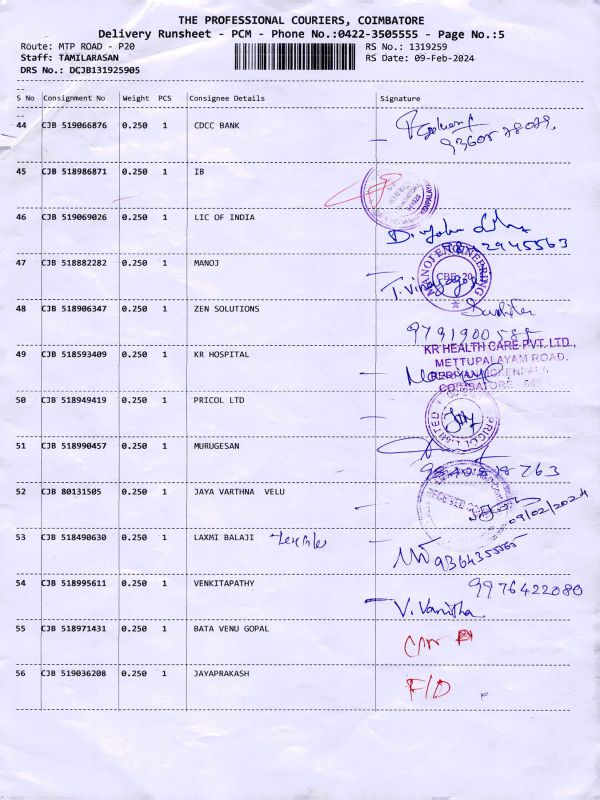 THE PROFESSIONAL COURIERS, COIMBATORE
Delivery Runsheet - PCM - Phone No.:0422-3505555 - Page No.:5
Route: MTP ROAD - P20 RS No.: 1319259
Staff: TAMILARASAN RS Date: 09-Feb-2024
DRS No.: DCJB131925905
S No Consignment No Weight PCS Consignee Details Signature
44 CJB 519066876 0.250 1 CDCC BANK
45 CJB 518986871 0.250 1 IB
46 CJB 519069026 0.250 1 LIC OF INDIA
47 CJB 518882282 0.250 1 MANOJ
MANOJ ENGINEERING
CBE-20
48 CJB 518906347 0.250 1 ZEN SOLUTIONS
49 CJB 518593409 0.250 1 KR HOSPITAL
KR HEALTH CARE PVT. LTD.,
METTUPALAYAM ROAD,
COIMBATORE
50 CJB 518949419 0.250 1 PRICOL LTD
PRICOL LIMITED
51 CJB 518990457 0.250 1 MURUGESAN
52 CJB 80131505 0.250 1 JAYA VARTHNA VELU
RECEIVED
09/02/2024
53 CJB 518490630 0.250 1 LAXMI BALAJI
54 CJB 518995611 0.250 1 VENKITAPATHY 9976422080
V. Vanitha
55 CJB 518971431 0.250 1 BATA VENU GOPAL
56 CJB 519036208 0.250 1 JAYAPRAKASH F/D